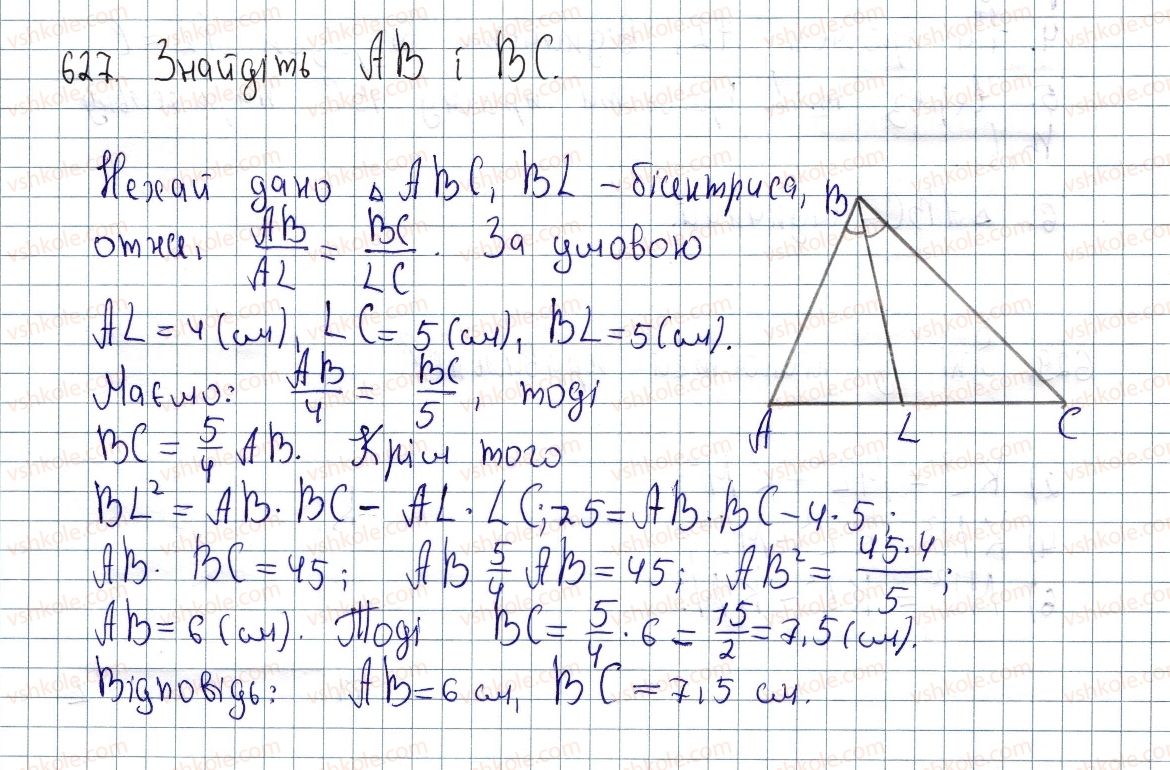 627. Знайдіть AB і BC.
Нехай дано △ ABC, BL – бісектриса,
отже, AB/AL = BC/LC. За умовою
AL = 4 (см), LC = 5 (см), BL = 5 (см).
Маємо: AB/4 = BC/5, тоді
BC = 5/4 AB. Крім того
BL² = AB · BC – AL · LC; 25 = AB · BC – 4 · 5;
AB · BC = 45; AB 5/4 AB = 45; AB² = 45·4/5;
AB = 6 (см). Тоді BC = 5/4 · 6 = 15/2 = 7,5 (см).
Відповідь: AB = 6 см, BC = 7,5 см.
B
A
L
C
vshkole.com